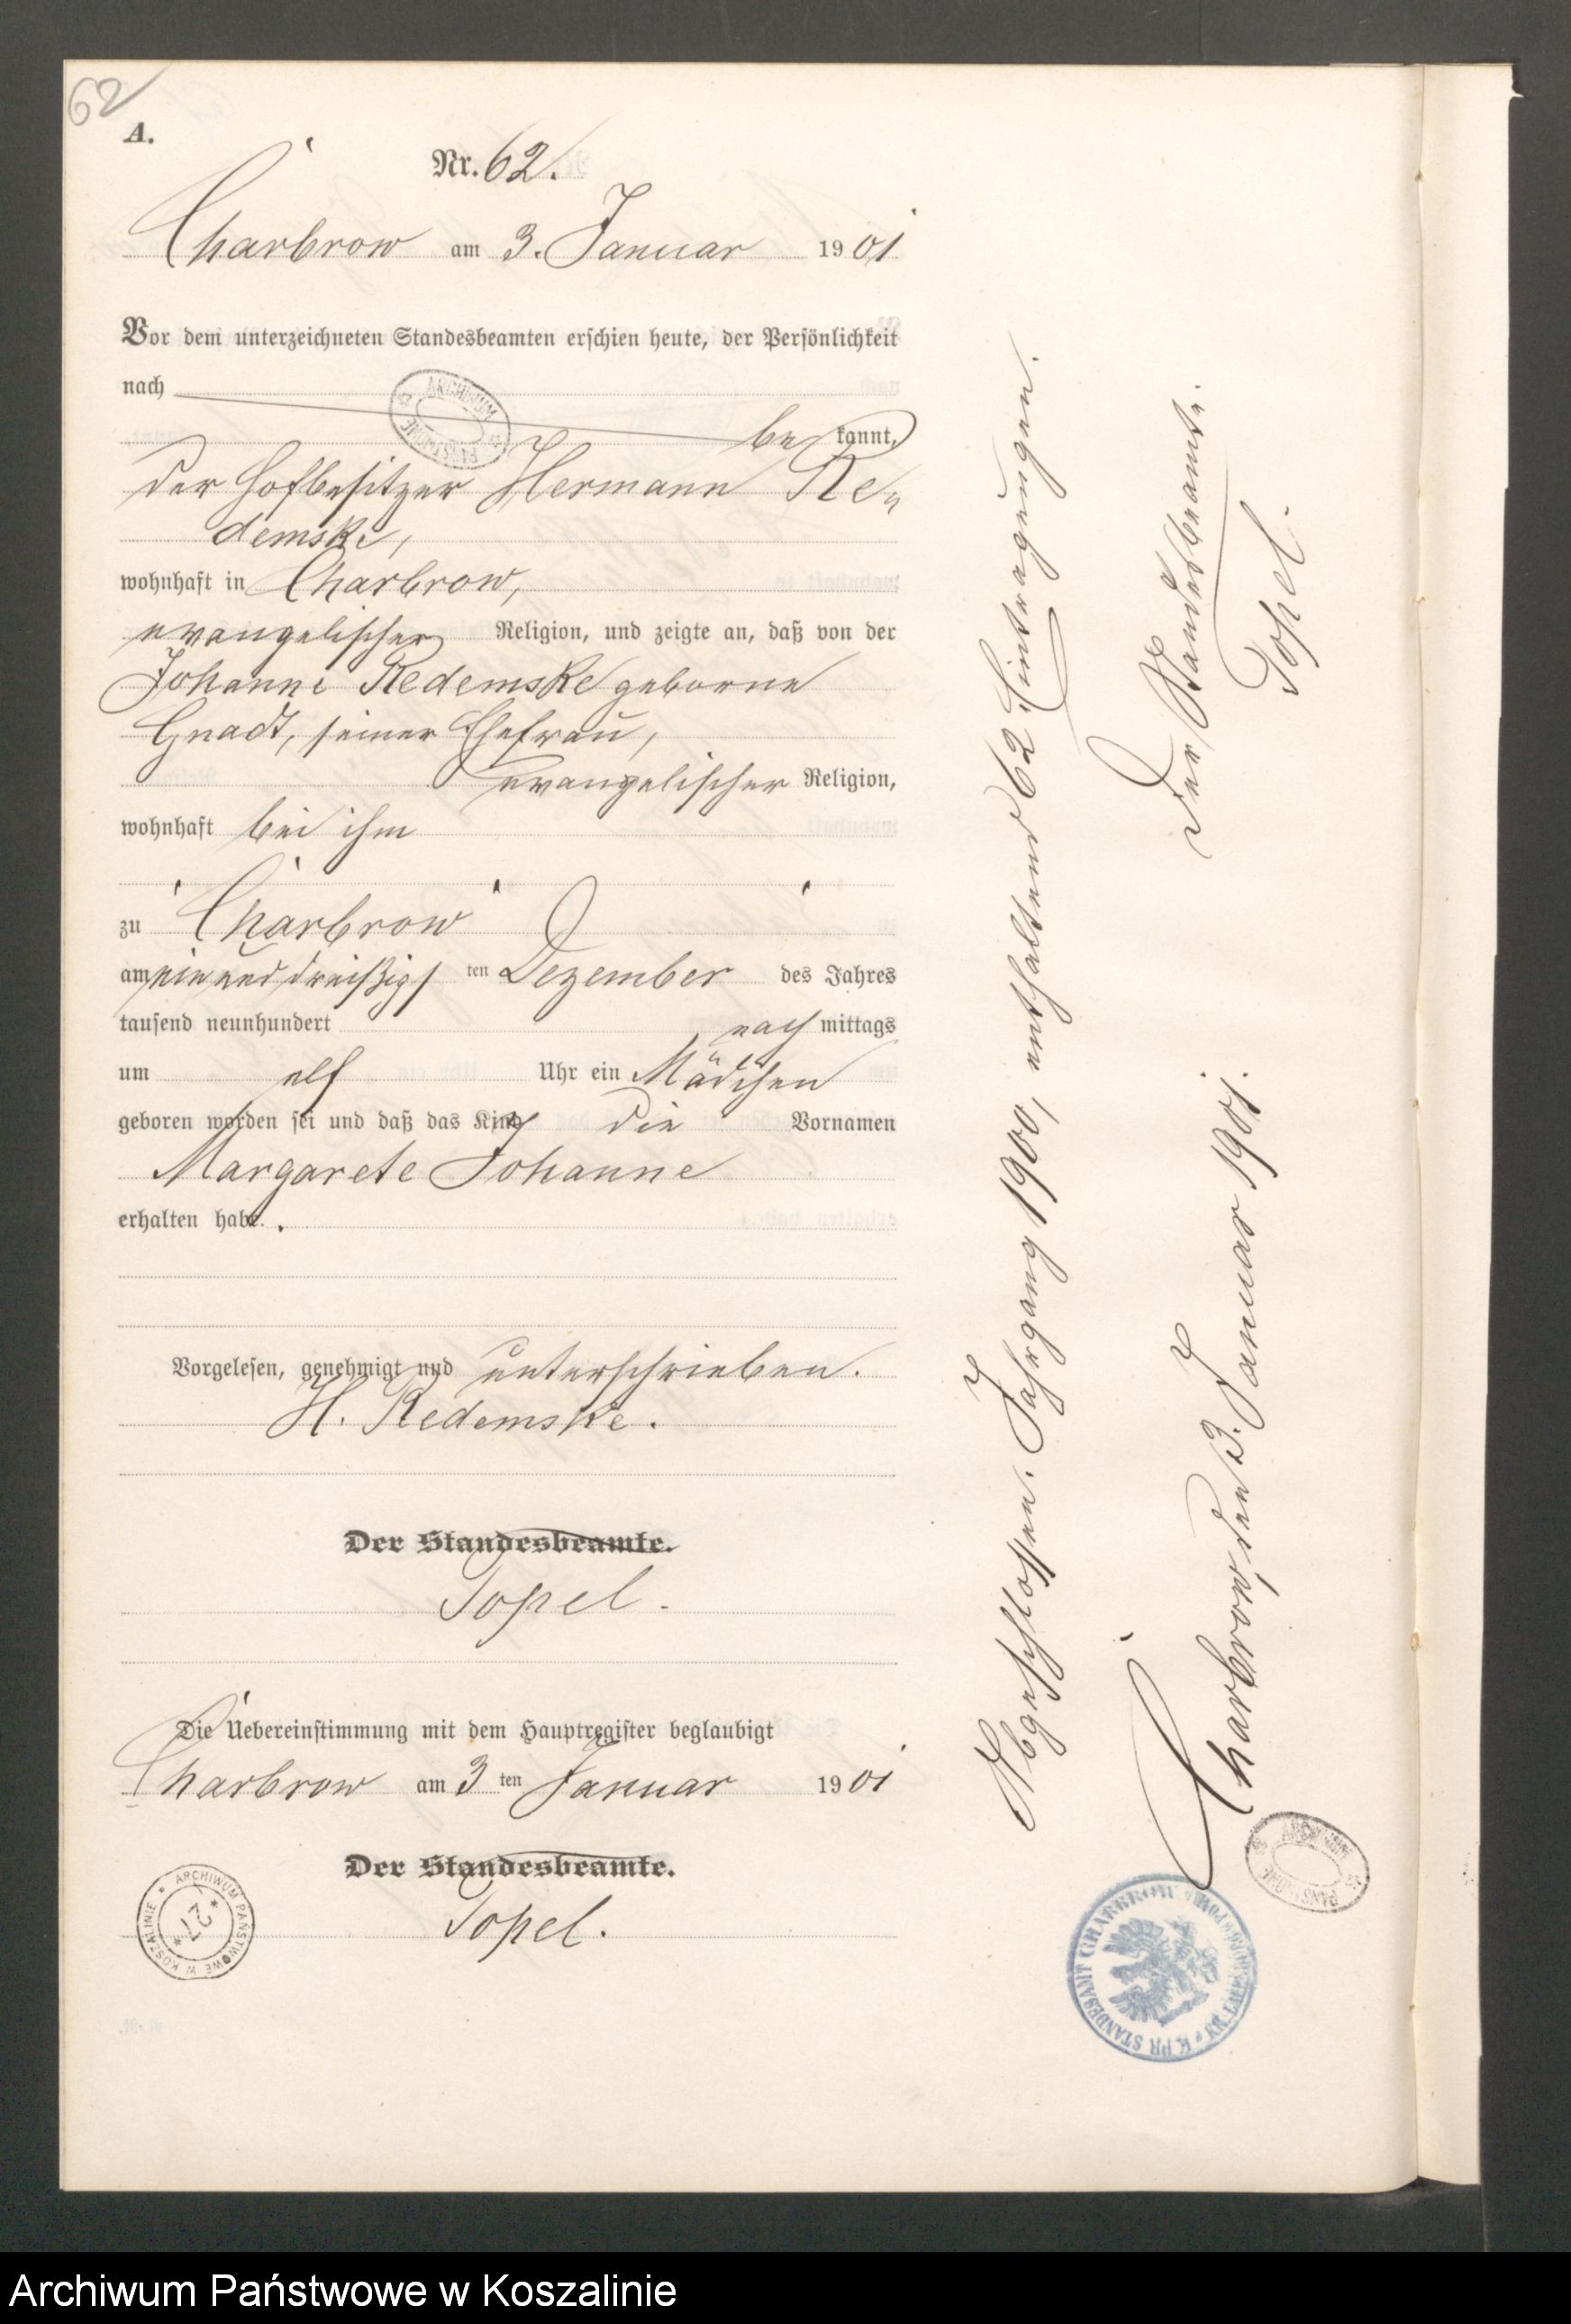 62
A.
Nr. 62.
Charbrow am 3. Januar 1901
Vor dem unterzeichneten Standesbeamten erschien heute, der Persönlichkeit
nach
be kannt,
der Hofbesitzer Hermann Re„
demske,
wohnhaft in Charbrow,
evangelischer Religion, und zeigte an, daß von der
Johanne Redemske geborne
Gnadt, seiner Ehefrau,
evangelischer Religion,
wohnhaft bei ihm
zu Charbrow
am ein und dreißigs ten Dezember des Jahres
tausend neunhundert nach mittags
um elf Uhr ein Mädchen
geboren worden sei und daß das Kind die Vornamen
Margarete Johanne
erhalten habe.
Vorgelesen, genehmigt und unterschrieben.
H. Redemske.
Der Standesbeamte.
Topel.
Die Uebereinstimmung mit dem Hauptregister beglaubigt
Charbrow am 3 ten Januar 1901
Der Standesbeamte.
Topel.
Abgeschlossen. Jahrgang 1900, enthaltend 62 Eintragungen.
Charbrow, den 3. Januar 1901.
Der Standesbeamte.
Topel.
ARCHIWUM PAŃSTWOWE
ARCHIWUM PAŃSTWOWE W KOSZALINIE
* 27 *
ARCHIWUM PAŃSTWOWE
K. PR. STANDESAMT CHARBROW
Archiwum Państwowe w Koszalinie